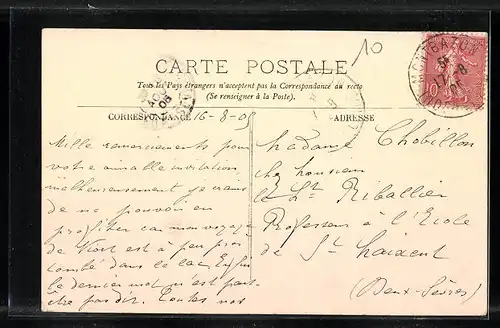 10
CARTE POSTALE
Tous les Pays étrangers n'acceptent pas la Correspondance au recto
(Se renseigner à la Poste).
CORRESPONDANCE
ADRESSE
16-8-05
Mille remerciements pour
votre aimable invitation
malheureusement je crains
de ne pouvoir en
profiter car mon voyage
de Niort est à peu près
tombé dans le lac. Enfin
le dernier mot n'est peut-
être pas dit. Toutes nos
Madame Chobillon
chez Monsieur
le Lt Riballier
Professeur à l'Ecole
de St Maixent
(Deux-Sèvres)
MONTBAZON
17-8
05
10